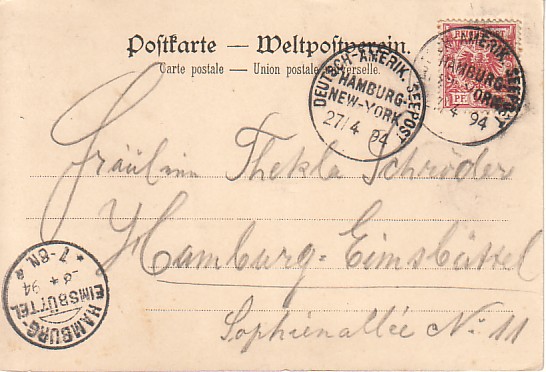 Postkarte — Weltpostverein.
Carte postale — Union postale universelle.
DEUTSCH-AMERIK. SEEPOST
HAMBURG-
NEW-YORK
27/4 94
AMERIK. SEEPOST
HAMBURG-
YORK
/4 94
REICHSPOST
PF
Fräulein Thekla Schröder
Hamburg-Eimsbüttel
Sophienallée No. 11
HAMBURG-
EIMSBÜTTEL
94
* 7-8N.